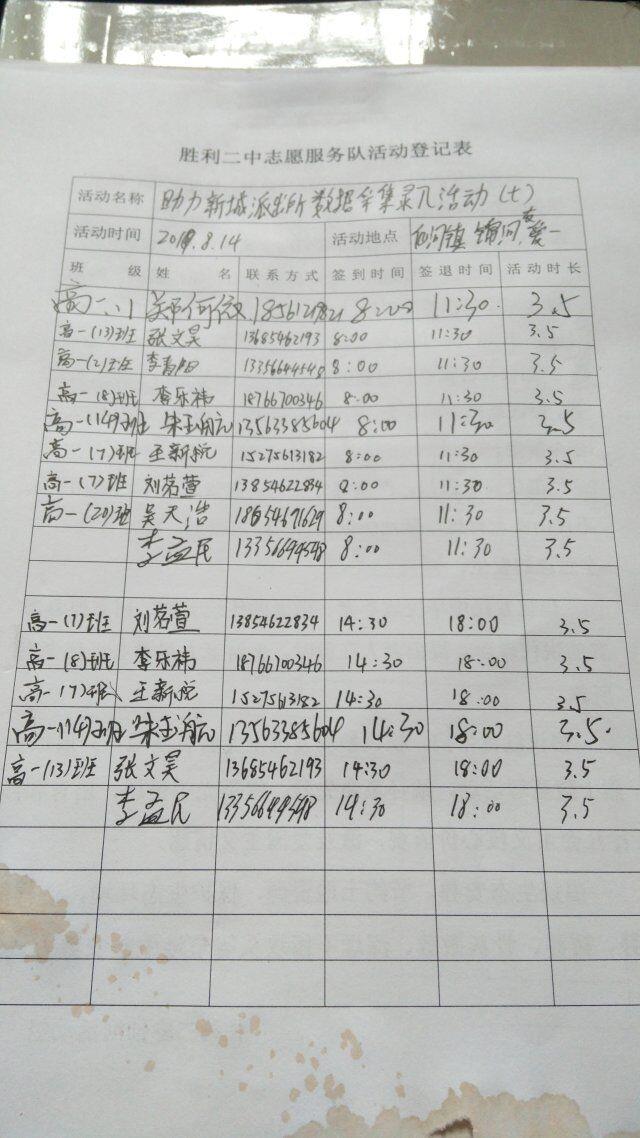 胜利二中志愿服务队活动登记表
活动名称 助力新城派出所数据采集录入活动(七)
活动时间 2018.8.14 活动地点 仙河镇
班级 姓名 联系方式 签到时间 签退时间 活动时长
8:00 11:30 3.5
高一(13)班 张文昊 13685462193 8:00 11:30 3.5
高一(2)班 8:00 11:30 3.5
高一(8)班 李乐祎 18766700346 8:00 11:30 3.5
高一(14)班 13563385604 8:00 11:30 3.5
高一(7)班 王新 15275613182 8:00 11:30 3.5
高一(7)班 刘茗萱 13854622834 8:00 11:30 3.5
高一(20)班 吴天浩 8:00 11:30 3.5
李孟民 8:00 11:30 3.5
高一(7)班 刘茗萱 13854622834 14:30 18:00 3.5
高一(8)班 李乐祎 18766700346 14:30 18:00 3.5
高一(7)班 王新 15275613182 14:30 18:00 3.5
高一(14)班 13563385604 14:30 18:00 3.5
高一(13)班 张文昊 13685462193 14:30 18:00 3.5
李孟民 14:30 18:00 3.5